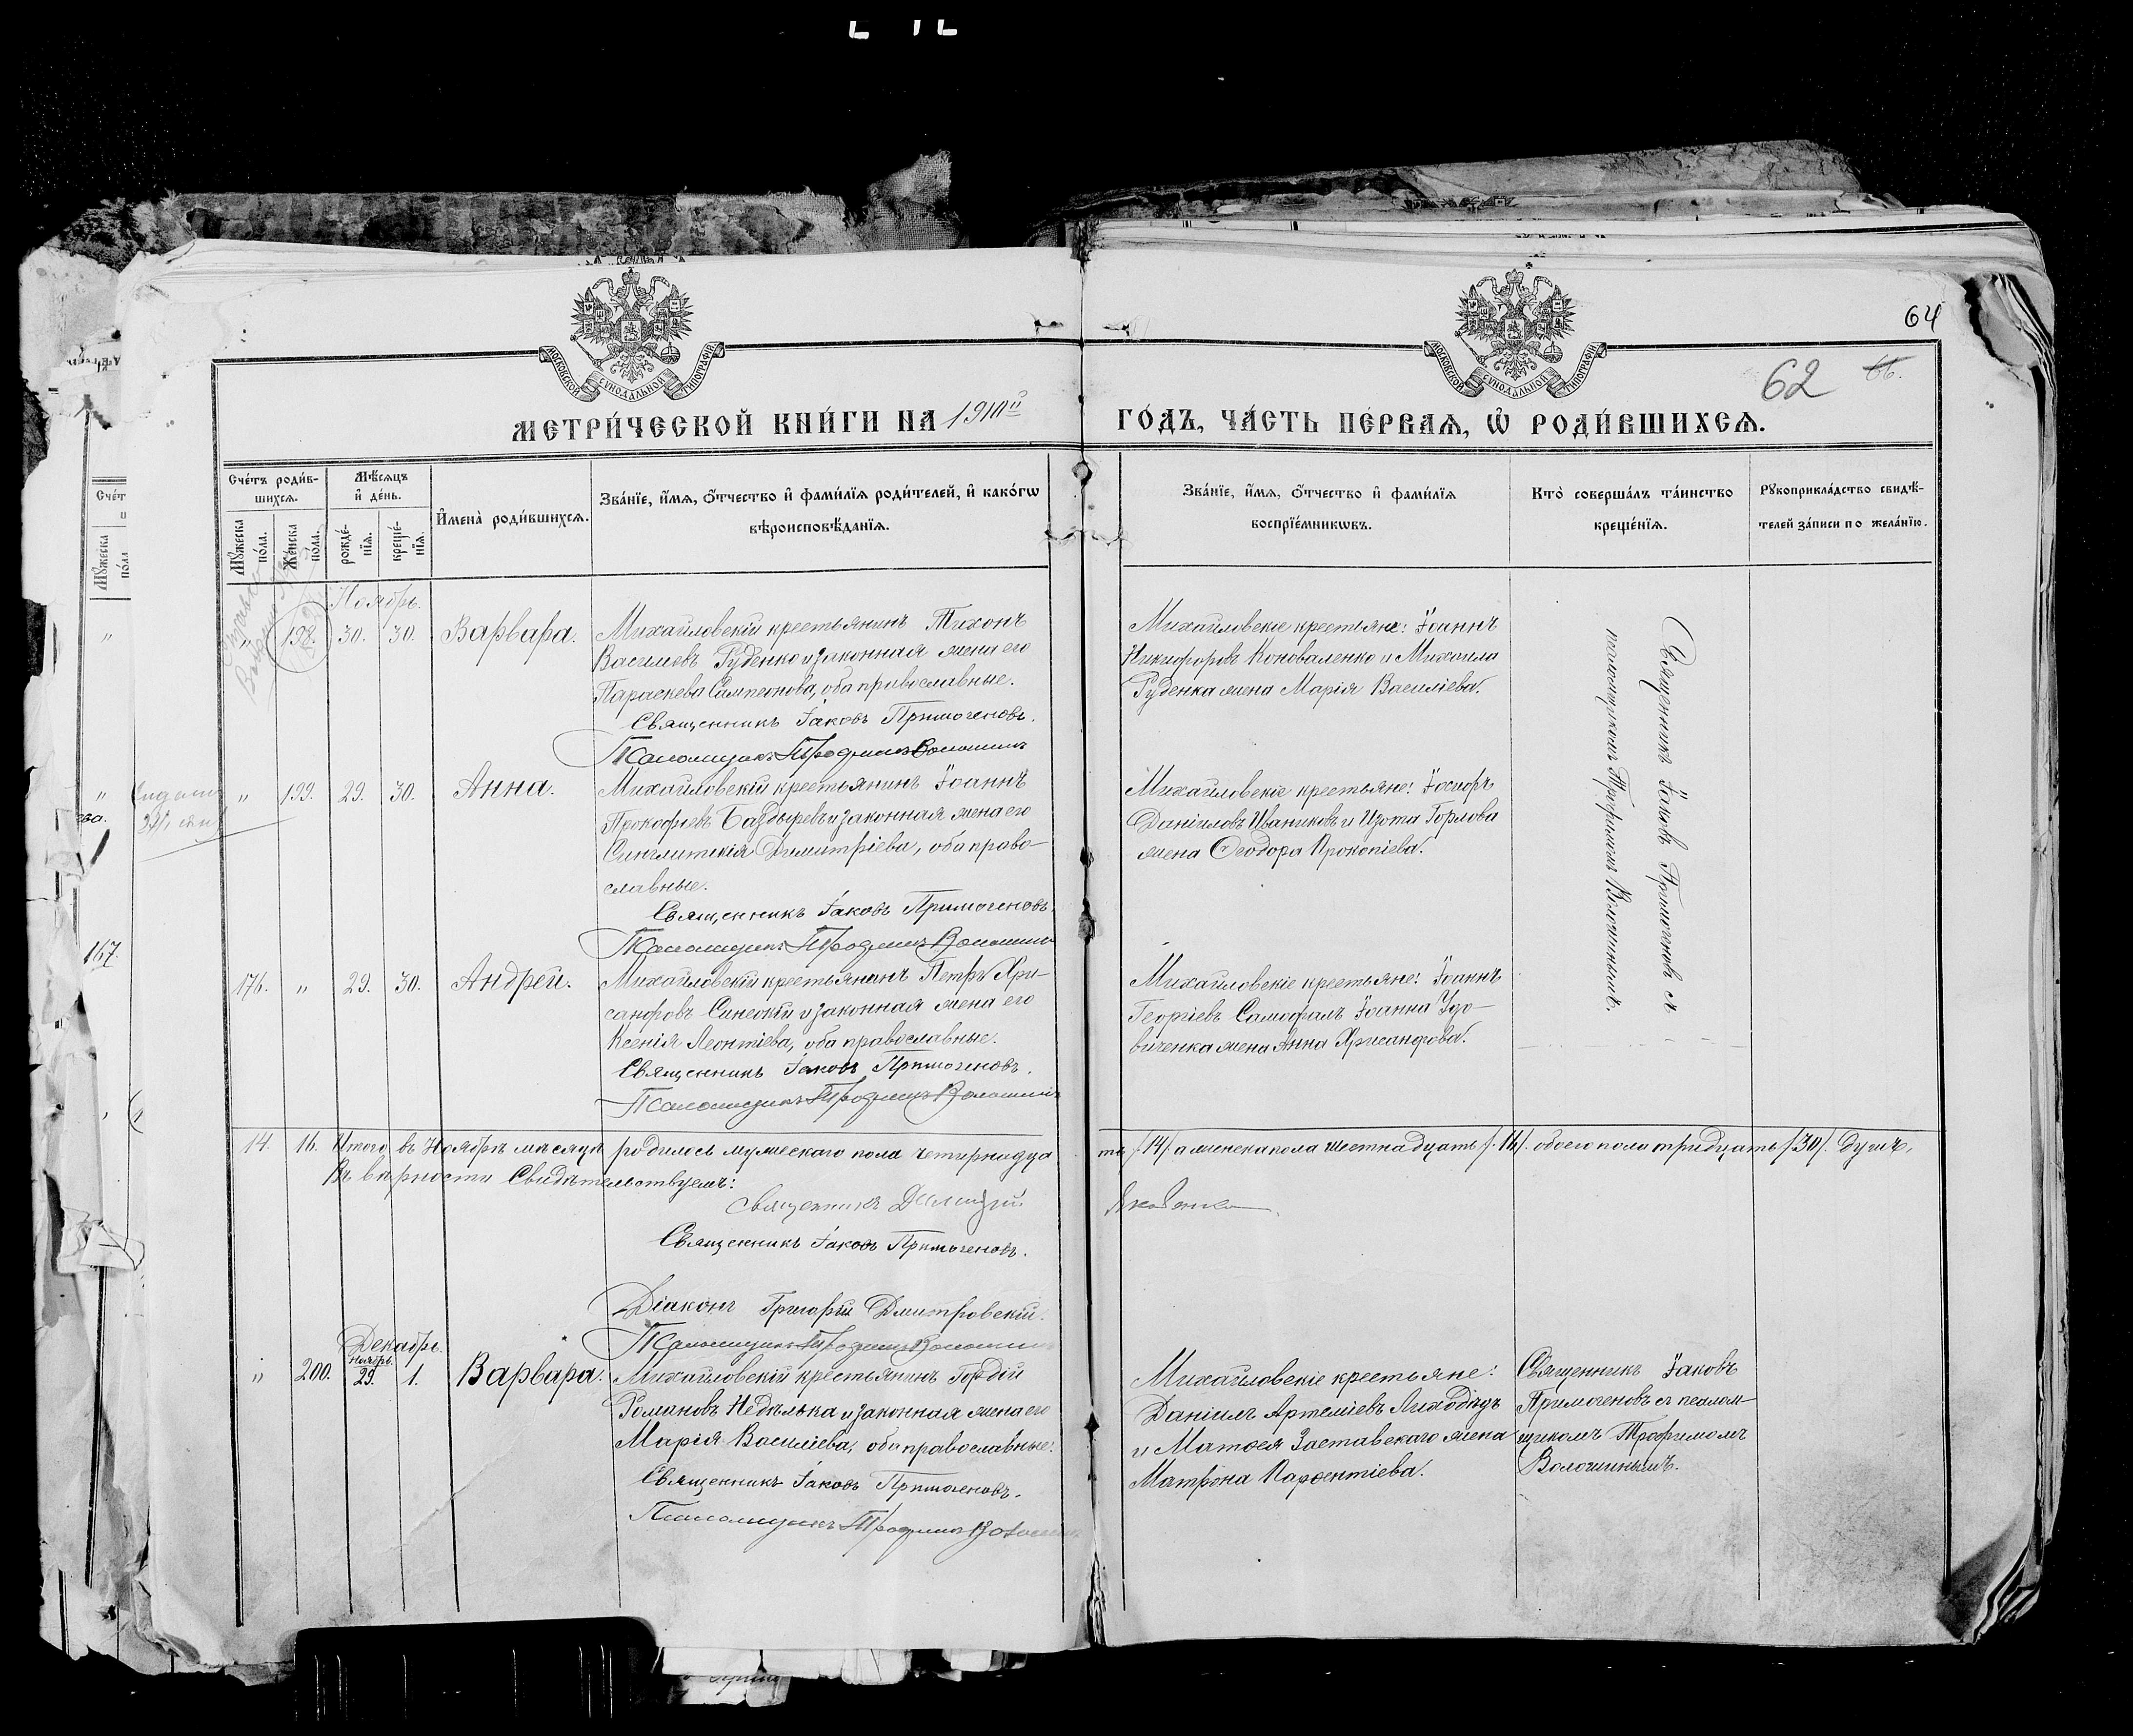 64
62
66.
МОСКОВСКОЙ СУНОДАЛЬНОЙ ТИПОГРАФІИ
МОСКОВСКОЙ СУНОДАЛЬНОЙ ТИПОГРАФІИ
МЕТРИ́ЧЕСКОЙ КНИ́ГИ НА 1910й ГО́ДЪ, ЧА́СТЬ ПЕ́РВАѦ, Ѽ РОДИ́ВШИХСѦ.
Сче́тъ роди́в-
шихсѧ.
Мꙋ́жеска
по́ла.
Же́нска
по́ла.
Мѣ́сѧцъ
и҆ де́нь.
рожде́-
нїѧ.
креще́-
нїѧ.
И҆мена̀ роди́вшихсѧ.
Зва́нїе, и҆́мѧ, ѻ҆́тчество и҆ фами́лїѧ роди́телей, и҆ како́гѡ
вѣроисповѣ́данїѧ.
Зва́нїе, и҆́мѧ, ѻ҆́тчество и҆ фами́лїѧ
воспрїе́мникѡвъ.
Кто̀ соверша́лъ та́инство
креще́нїѧ.
Рꙋкоприкла́дство свидѣ́-
телей за́писи по жела́нїю.
Ноябрь.
" 198. 30. 30. Варвара.
Михайловскій крестьянинъ Тихонъ
Василіевъ Руденко и законная жена его
Параскева Сампсонова, оба православные.
Священникъ Іаковъ Примогеновъ.
Псаломщикъ Трофимъ Волошинъ
Михайловскіе крестьяне: Іоаннъ
Никифоровъ Коноваленко и Михаила
Руденка жена Марія Василіева.
Священникъ Іаковъ Примогеновъ съ
псаломщикомъ Трофимомъ Волошинымъ.
" 199. 29. 30. Анна.
Михайловскій крестьянинъ Іоаннъ
Прокофіевъ Баздыревъ и законная жена его
Синклитикія Димитріева, оба право-
славные.
Священникъ Іаковъ Примогеновъ.
Псаломщикъ Трофимъ Волошинъ
Михайловскіе крестьяне: Іосифъ
Даніиловъ Иваниковъ и Изота Горлова
жена Ѳеодора Прокопіева.
176. " 29. 30. Андрей.
Михайловскій крестьянинъ Петръ Хри-
санфовъ Синеокій и законная жена его
Ксенія Леонтіева, оба православные.
Священникъ Іаковъ Примогеновъ.
Псаломщикъ Трофимъ Волошинъ
Михайловскіе крестьяне: Іоаннъ
Георгіевъ Самофалъ Іоанна Удо-
виченка жена Анна Хрисанфова.
14. 16. Итого въ Ноябрѣ мѣсяцѣ родилось мужескаго пола четырнадца
ть /14/ а женска пола шестнадцать /16/ обоего пола тридцать /30/ душъ.
Въ вѣрности свидѣтельствуемъ:
Священникъ
Священникъ Іаковъ Примогеновъ.
Діаконъ Григорій Дмитровскій.
Псаломщикъ Трофимъ Волошинъ
Декабрь.
" 200. Ноябрь. 29. 1. Варвара.
Михайловскій крестьянинъ Гордій
Романовъ Недѣлька и законная жена его
Марія Василіева, оба православные.
Священникъ Іаковъ Примогеновъ.
Псаломщикъ Трофимъ Волошинъ
Михайловскіе крестьяне:
Даніилъ Артеміевъ Лиходѣдъ
и Матѳея Заставскаго жена
Матрона Парѳентіева.
Священникъ Іаковъ
Примогеновъ съ псалом-
щикомъ Трофимомъ
Волошинымъ.
167.